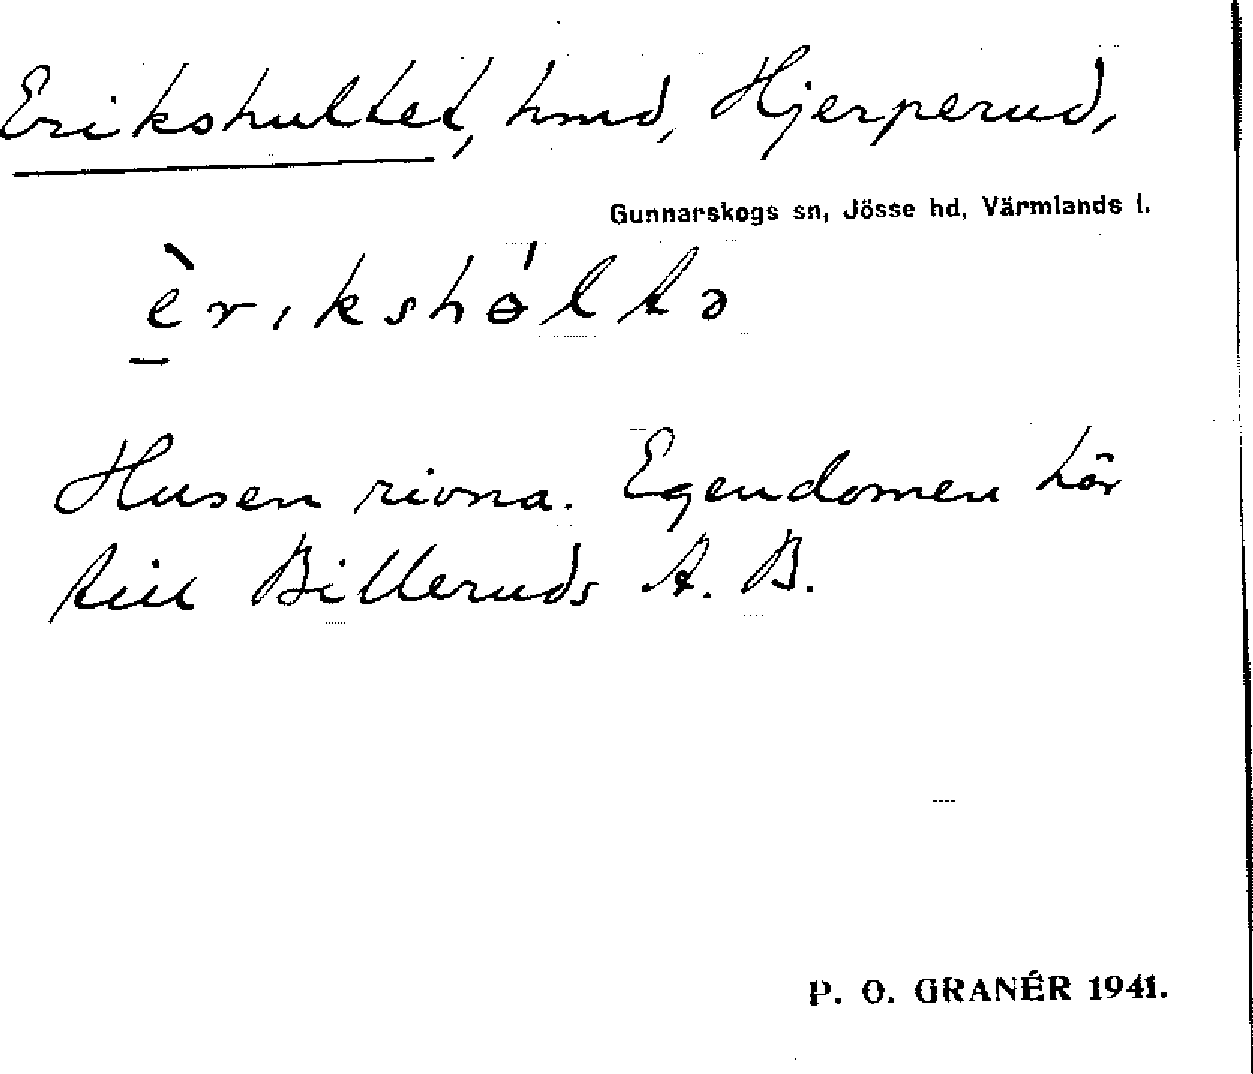 Erikshultet, hmd, Hjerperud,
Gunnarskogs sn, Jösse hd, Värmlands l.
èrikshɵ́ltə
Husen rivna. Egendomen hör
till Billeruds A. B.
P. O. GRANÉR 1941.